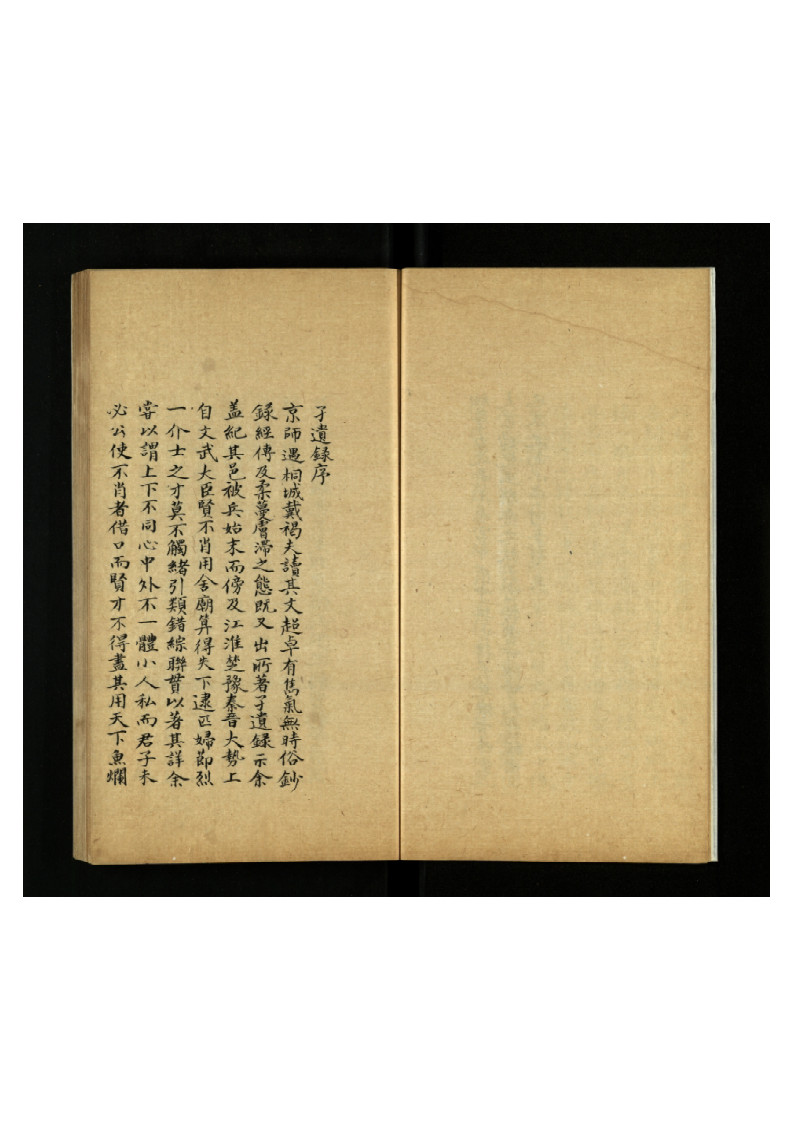 孑遺録序
京師遇桐城戴褐夫讀其文超卓有雋氣無時俗鈔
録經傳及柔蔓膚滯之態既又出所著孑遺録示余
盖紀其邑被兵始末而傍及江淮楚豫秦晉大勢上
自文武大臣賢不肖用舍廟算得失下逮匹婦節烈
一介士之才莫不觸緒引類錯綜聯貫以著其詳余
甞以謂上下不同心中外不一體小人私而君子未
必公使不肖者借口而賢才不得盡其用天下魚爛